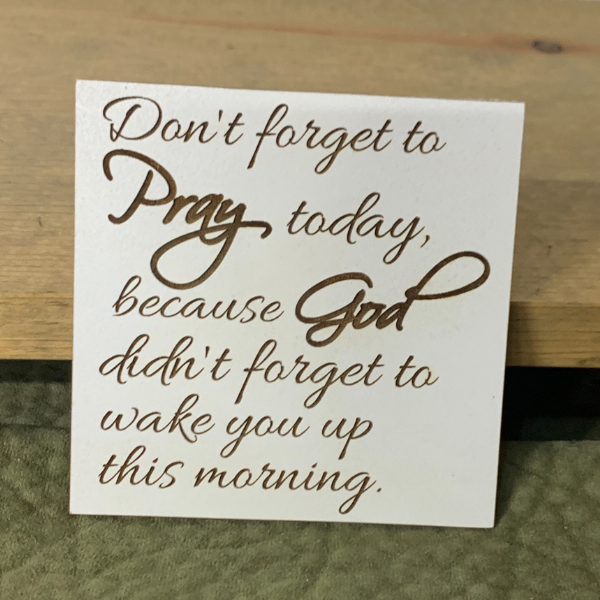 Don't forget to
Pray today,
because God
didn't forget to
wake you up
this morning.